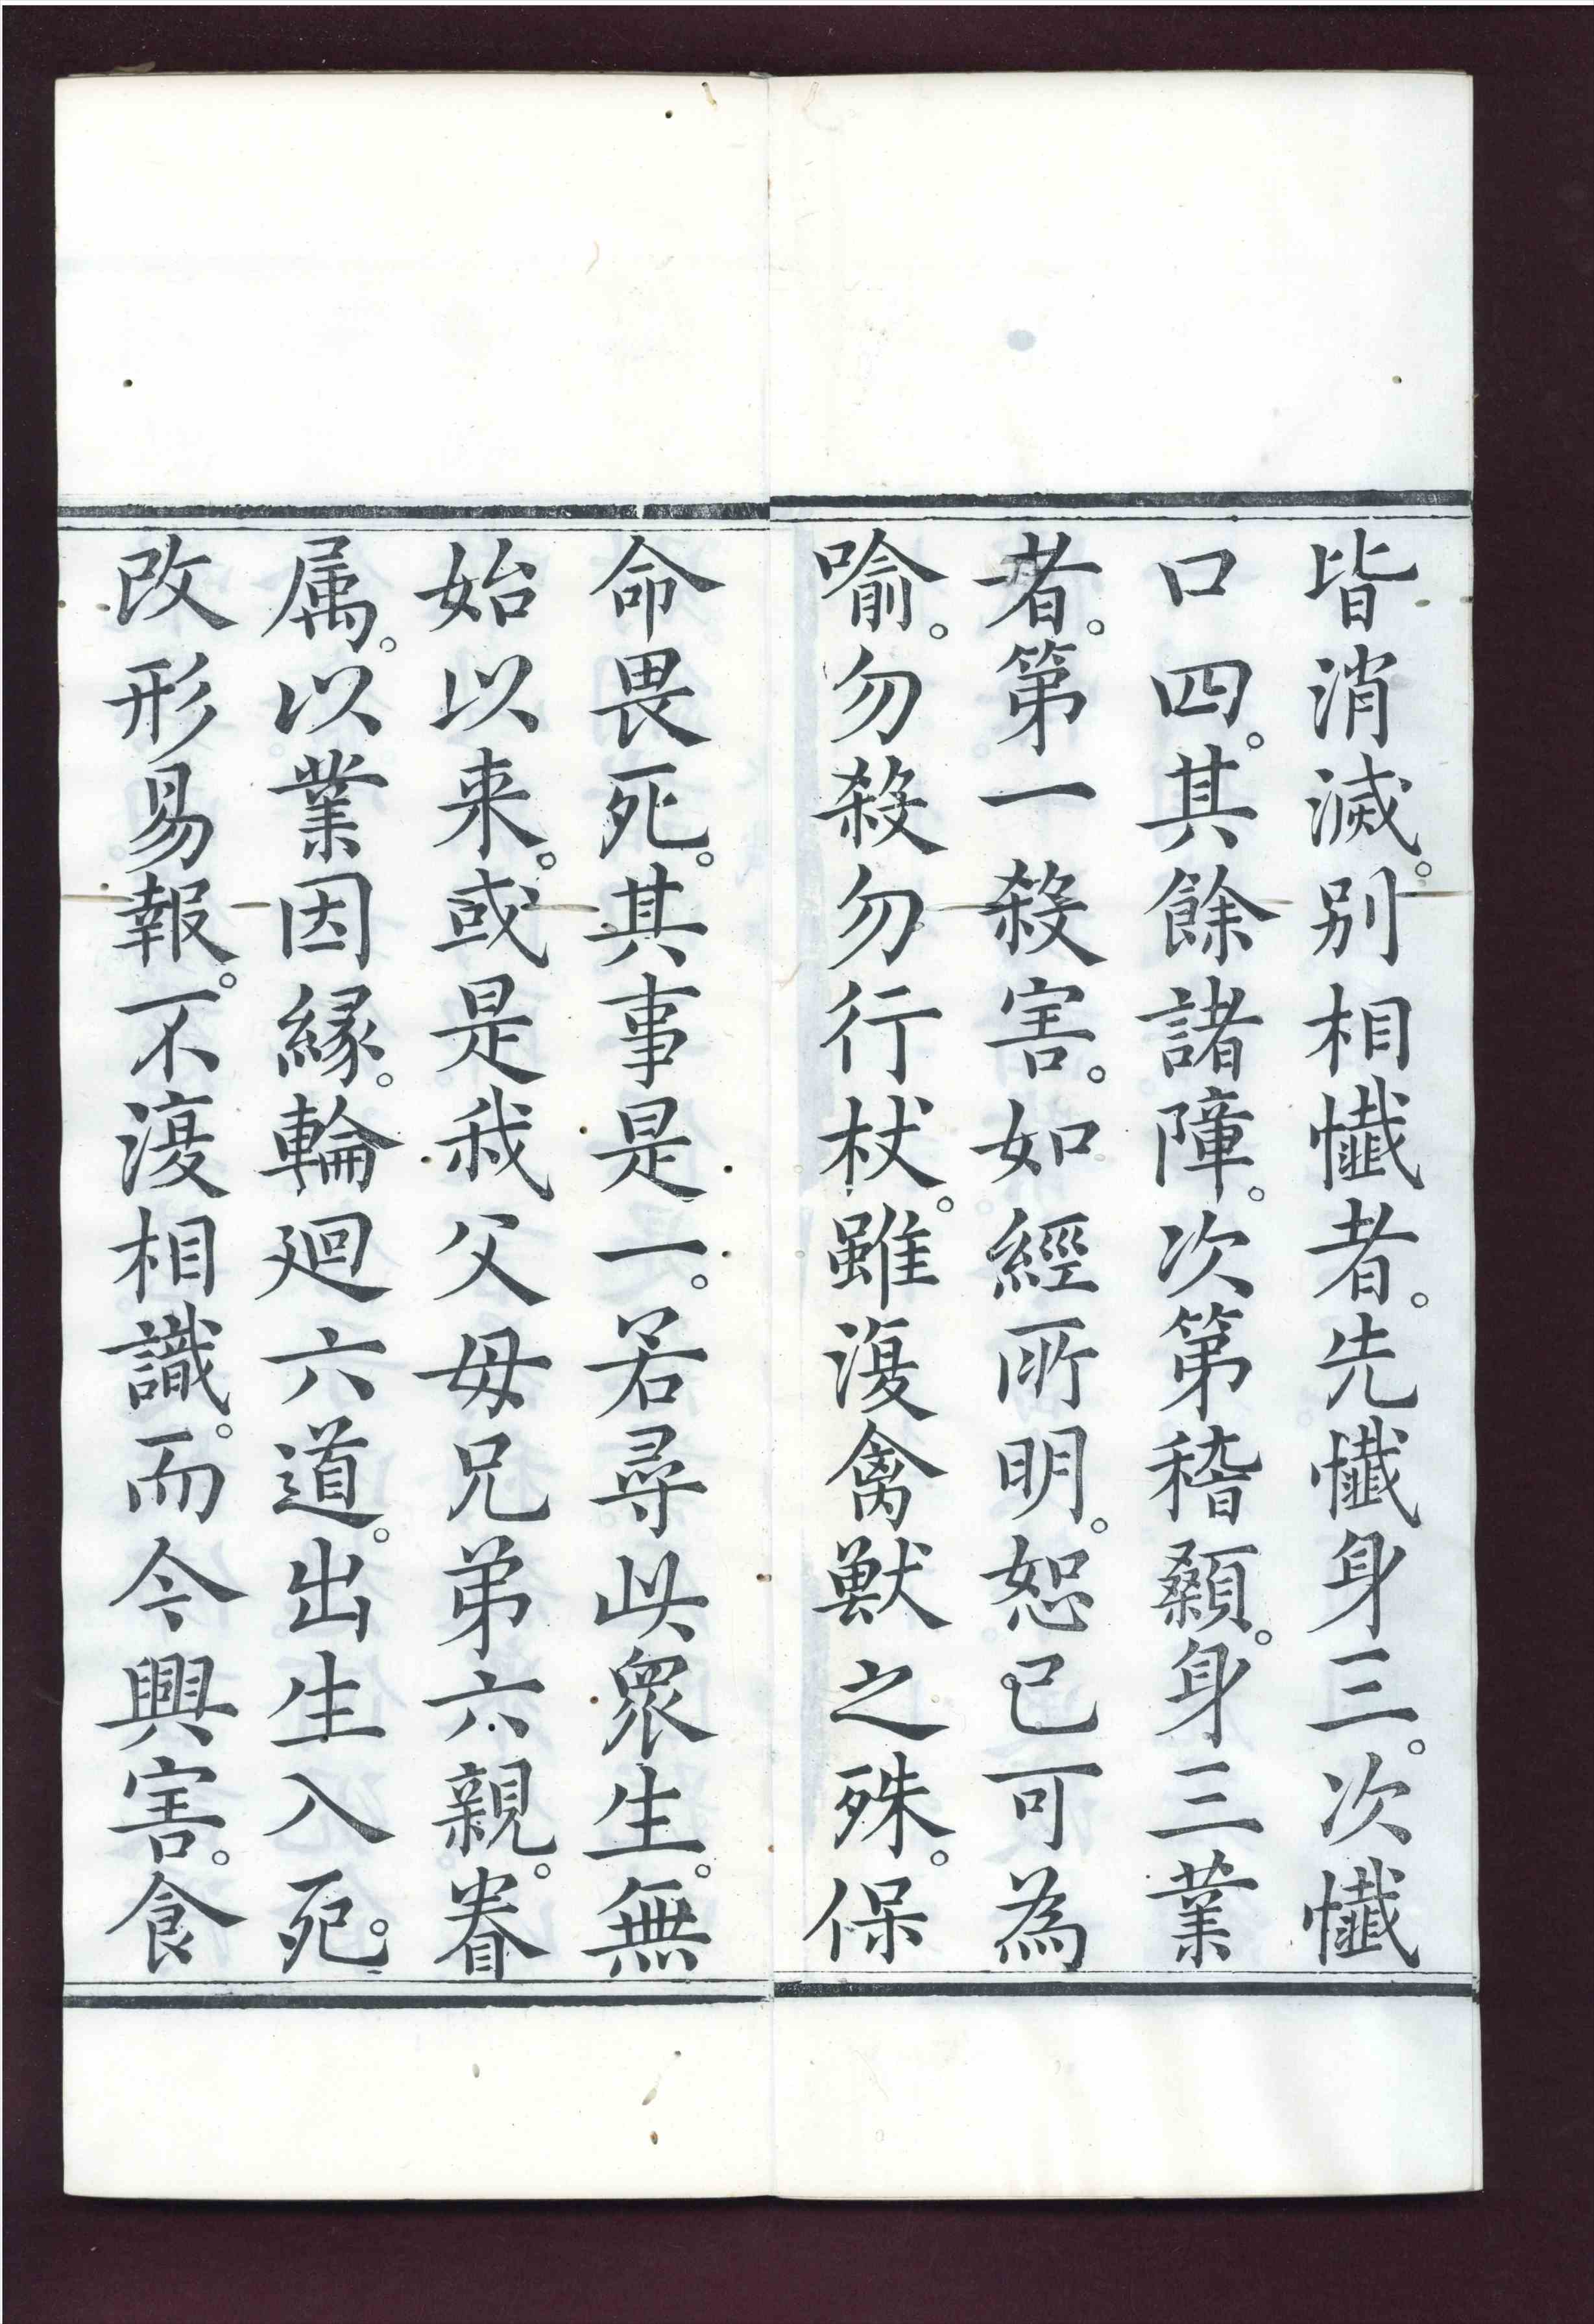 皆消滅。别相懺者。先懺身三。次懺
口四。其餘諸障。次第稽顙。身三業
者。第一殺害。如經所明。恕己可為
喻。勿殺勿行杖。雖復禽獸之殊。保
命畏死。其事是一。若尋此眾生。無
始以来。或是我父母兄弟六親。眷
属。以業因緣。輪廻六道。出生入死。
改形易報。不復相識。而今興害。食